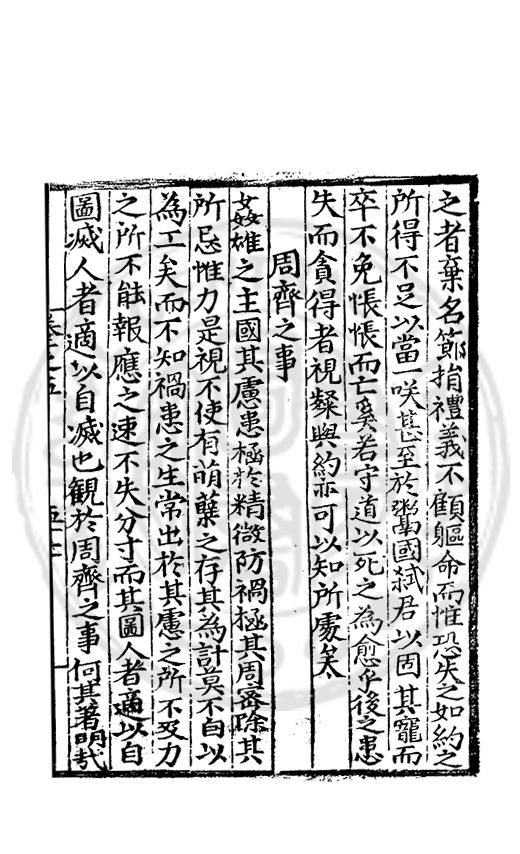 之者棄名節捐禮義不顧軀命而惟恐失之如約之
所得不足以當一咲甚至於鬻國弑君以固其寵而
卒不免悵悵而亡奚若守道以死之為愈乎後之患
失而貪得者視粲與約亦可以知所處矣
周齊之事
姦雄之主國其慮患極於精微防禍極其周密除其
所忌惟力是視不使有萌櫱之存其為計莫不自以
為工矣而不知禍患之生常出於其慮之所不及力
之所不能報應之速不失分寸而其圖人者適以自
圖滅人者適以自滅也観於周齊之事何其著明哉